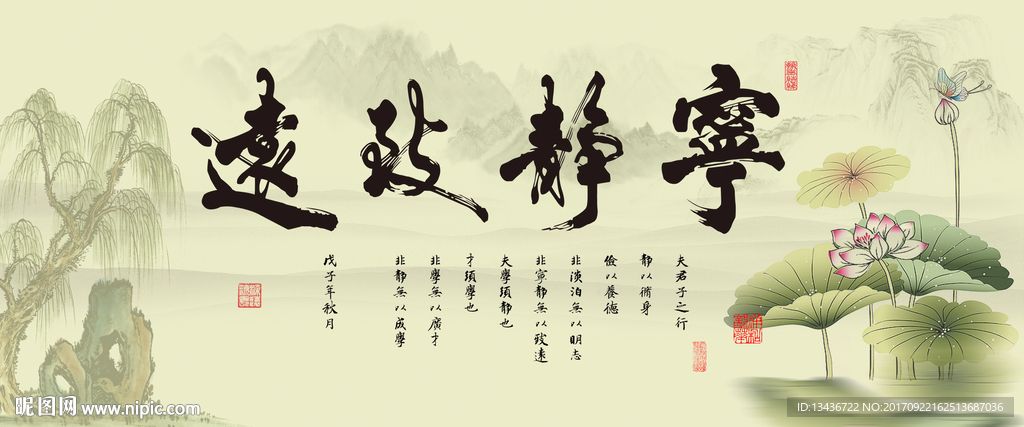 寧靜致遠
夫君子之行
靜以脩身
儉以養德
非淡泊無以明志
非寧靜無以致遠
夫學須靜也
才須學也
非學無以廣才
非靜無以成學
戊子年秋月
昵图网 www.nipic.com
ID:13436722 NO:20170922162513687036